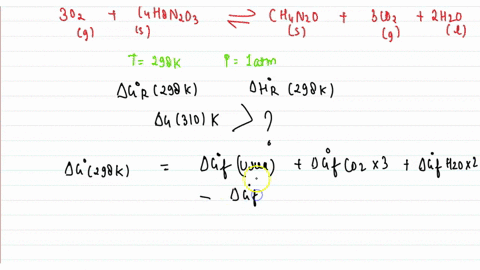 3O2 + C4H8N2O3 ⇌ CH4N2O + 3CO2 + 2H2O
(g) (s) (s) (g) (l)
T = 298K P = 1atm
ΔG°R (298K) ΔH°R (298K)
ΔG (310) K > ?
ΔG°(298K) = ΔG°f (Urea) + ΔG°f CO2 x 3 + ΔG°f H2O x 2
- ΔGf